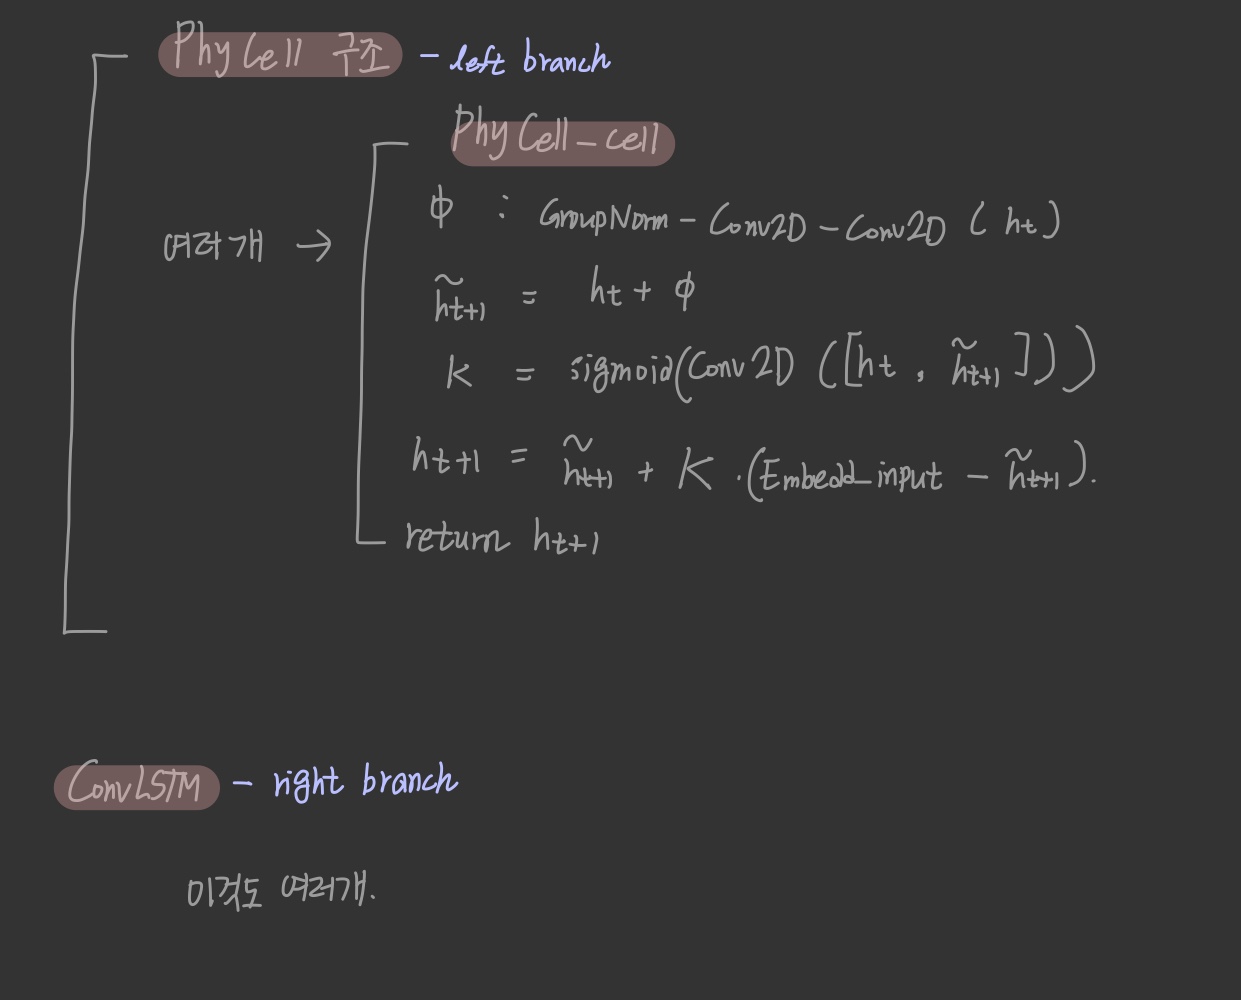 PhyCell 구조 - left branch
PhyCell-cell
여러개 →
ϕ : GroupNorm - Conv2D - Conv2D (ht)
h̃t+1 = ht + ϕ
K = sigmoid(Conv2D ([ht, h̃t+1]))
ht+1 = h̃t+1 + K · (Embedd_input - h̃t+1).
return ht+1
ConvLSTM - right branch
이것도 여러개.